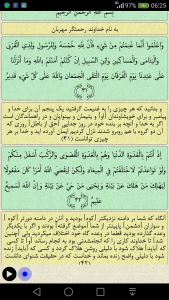 06:25
بِسْمِ اللَّهِ الرَّحْمَٰنِ الرَّحِيمِ
به نام خداوند رحمتگر مهربان
وَاعْلَمُوا أَنَّمَا غَنِمْتُم مِّن شَيْءٍ فَأَنَّ لِلَّهِ خُمُسَهُ وَلِلرَّسُولِ وَلِذِي الْقُرْبَىٰ
وَالْيَتَامَىٰ وَالْمَسَاكِينِ وَابْنِ السَّبِيلِ إِن كُنتُمْ آمَنتُم بِاللَّهِ وَمَا أَنزَلْنَا
عَلَىٰ عَبْدِنَا يَوْمَ الْفُرْقَانِ يَوْمَ الْتَقَى الْجَمْعَانِ وَاللَّهُ عَلَىٰ كُلِّ شَيْءٍ قَدِيرٌ
﴿٤١﴾
و بدانید که هر چیزی را به غنیمت گرفتید یک پنجم آن برای خدا و
پیامبر و برای خویشاوندان [او] و یتیمان و بینوایان و در راه‌ماندگان است
اگر به خدا و آنچه بر بنده خود در روز جدایی [حق از باطل] روزی که
آن دو گروه با هم روبرو شدند نازل کردیم ایمان آورده اید و خدا بر هر
چیزی تواناست (۴۱)
إِذْ أَنتُم بِالْعُدْوَةِ الدُّنْيَا وَهُم بِالْعُدْوَةِ الْقُصْوَىٰ وَالرَّكْبُ أَسْفَلَ مِنكُمْ
وَلَوْ تَوَاعَدتُّمْ لَاخْتَلَفْتُمْ فِي الْمِيعَادِ وَلَٰكِن لِّيَقْضِيَ اللَّهُ أَمْرًا كَانَ مَفْعُولًا
لِّيَهْلِكَ مَنْ هَلَكَ عَن بَيِّنَةٍ وَيَحْيَىٰ مَنْ حَيَّ عَن بَيِّنَةٍ وَإِنَّ اللَّهَ لَسَمِيعٌ
عَلِيمٌ ﴿٤٢﴾
آنگاه که شما بر دامنه نزدیکتر [کوه] بودید و آنان در دامنه دورتر [کوه]
و سواران [دشمن] پایین‌تر از شما [موضع گرفته] بودند و اگر با یکدیگر
وعده گذارده بودید قطعا در وعده گاه خود اختلاف میکردید ولی [چنین
شد] تا خداوند کاری را که انجام‌شدنی بود به انجام رساند [و] تا کسی
که [باید] هلاک شود با دلیلی روشن هلاک گردد و کسی که [باید] زنده
شود با دلیلی واضح زنده بماند و خداست که در حقیقت شنوای داناست
(۴۲)